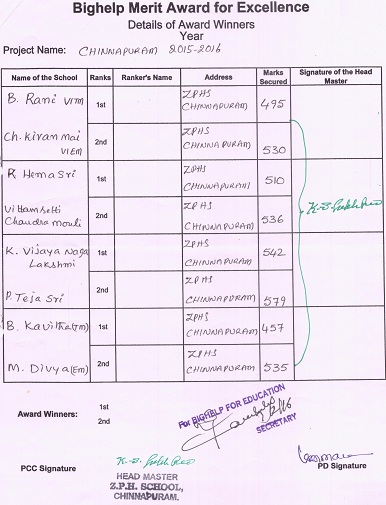 Bighelp Merit Award for Excellence
Details of Award Winners
Year
Project Name: CHINNAPURAM 2015-2016
Name of the School Ranks Ranker's Name Address Marks Secured Signature of the Head Master
B. Rani VTM 1st ZPHS CHINNAPURAM 495
Ch. Kiran mai VIEM 2nd ZPHS CHINNAPURAM 530
R Hema Sri 1st ZPHS CHINNAPURAM 510
Vittamsetti Chandra mouli 2nd ZPHS CHINNAPURAM 536
K. Vijaya Naga Lakshmi 1st ZPHS CHINNAPURAM 542
P. Teja Sri 2nd ZPHS CHINNAPURAM 579
B. Kavitha (TM) 1st ZPHS CHINNAPURAM 457
M. Divya (EM) 2nd ZPHS CHINNAPURAM 535
Award Winners: 1st
2nd
For BIGHELP FOR EDUCATION
SECRETARY
PCC Signature
PD Signature
HEAD MASTER
Z.P.H. SCHOOL,
CHINNAPURAM.